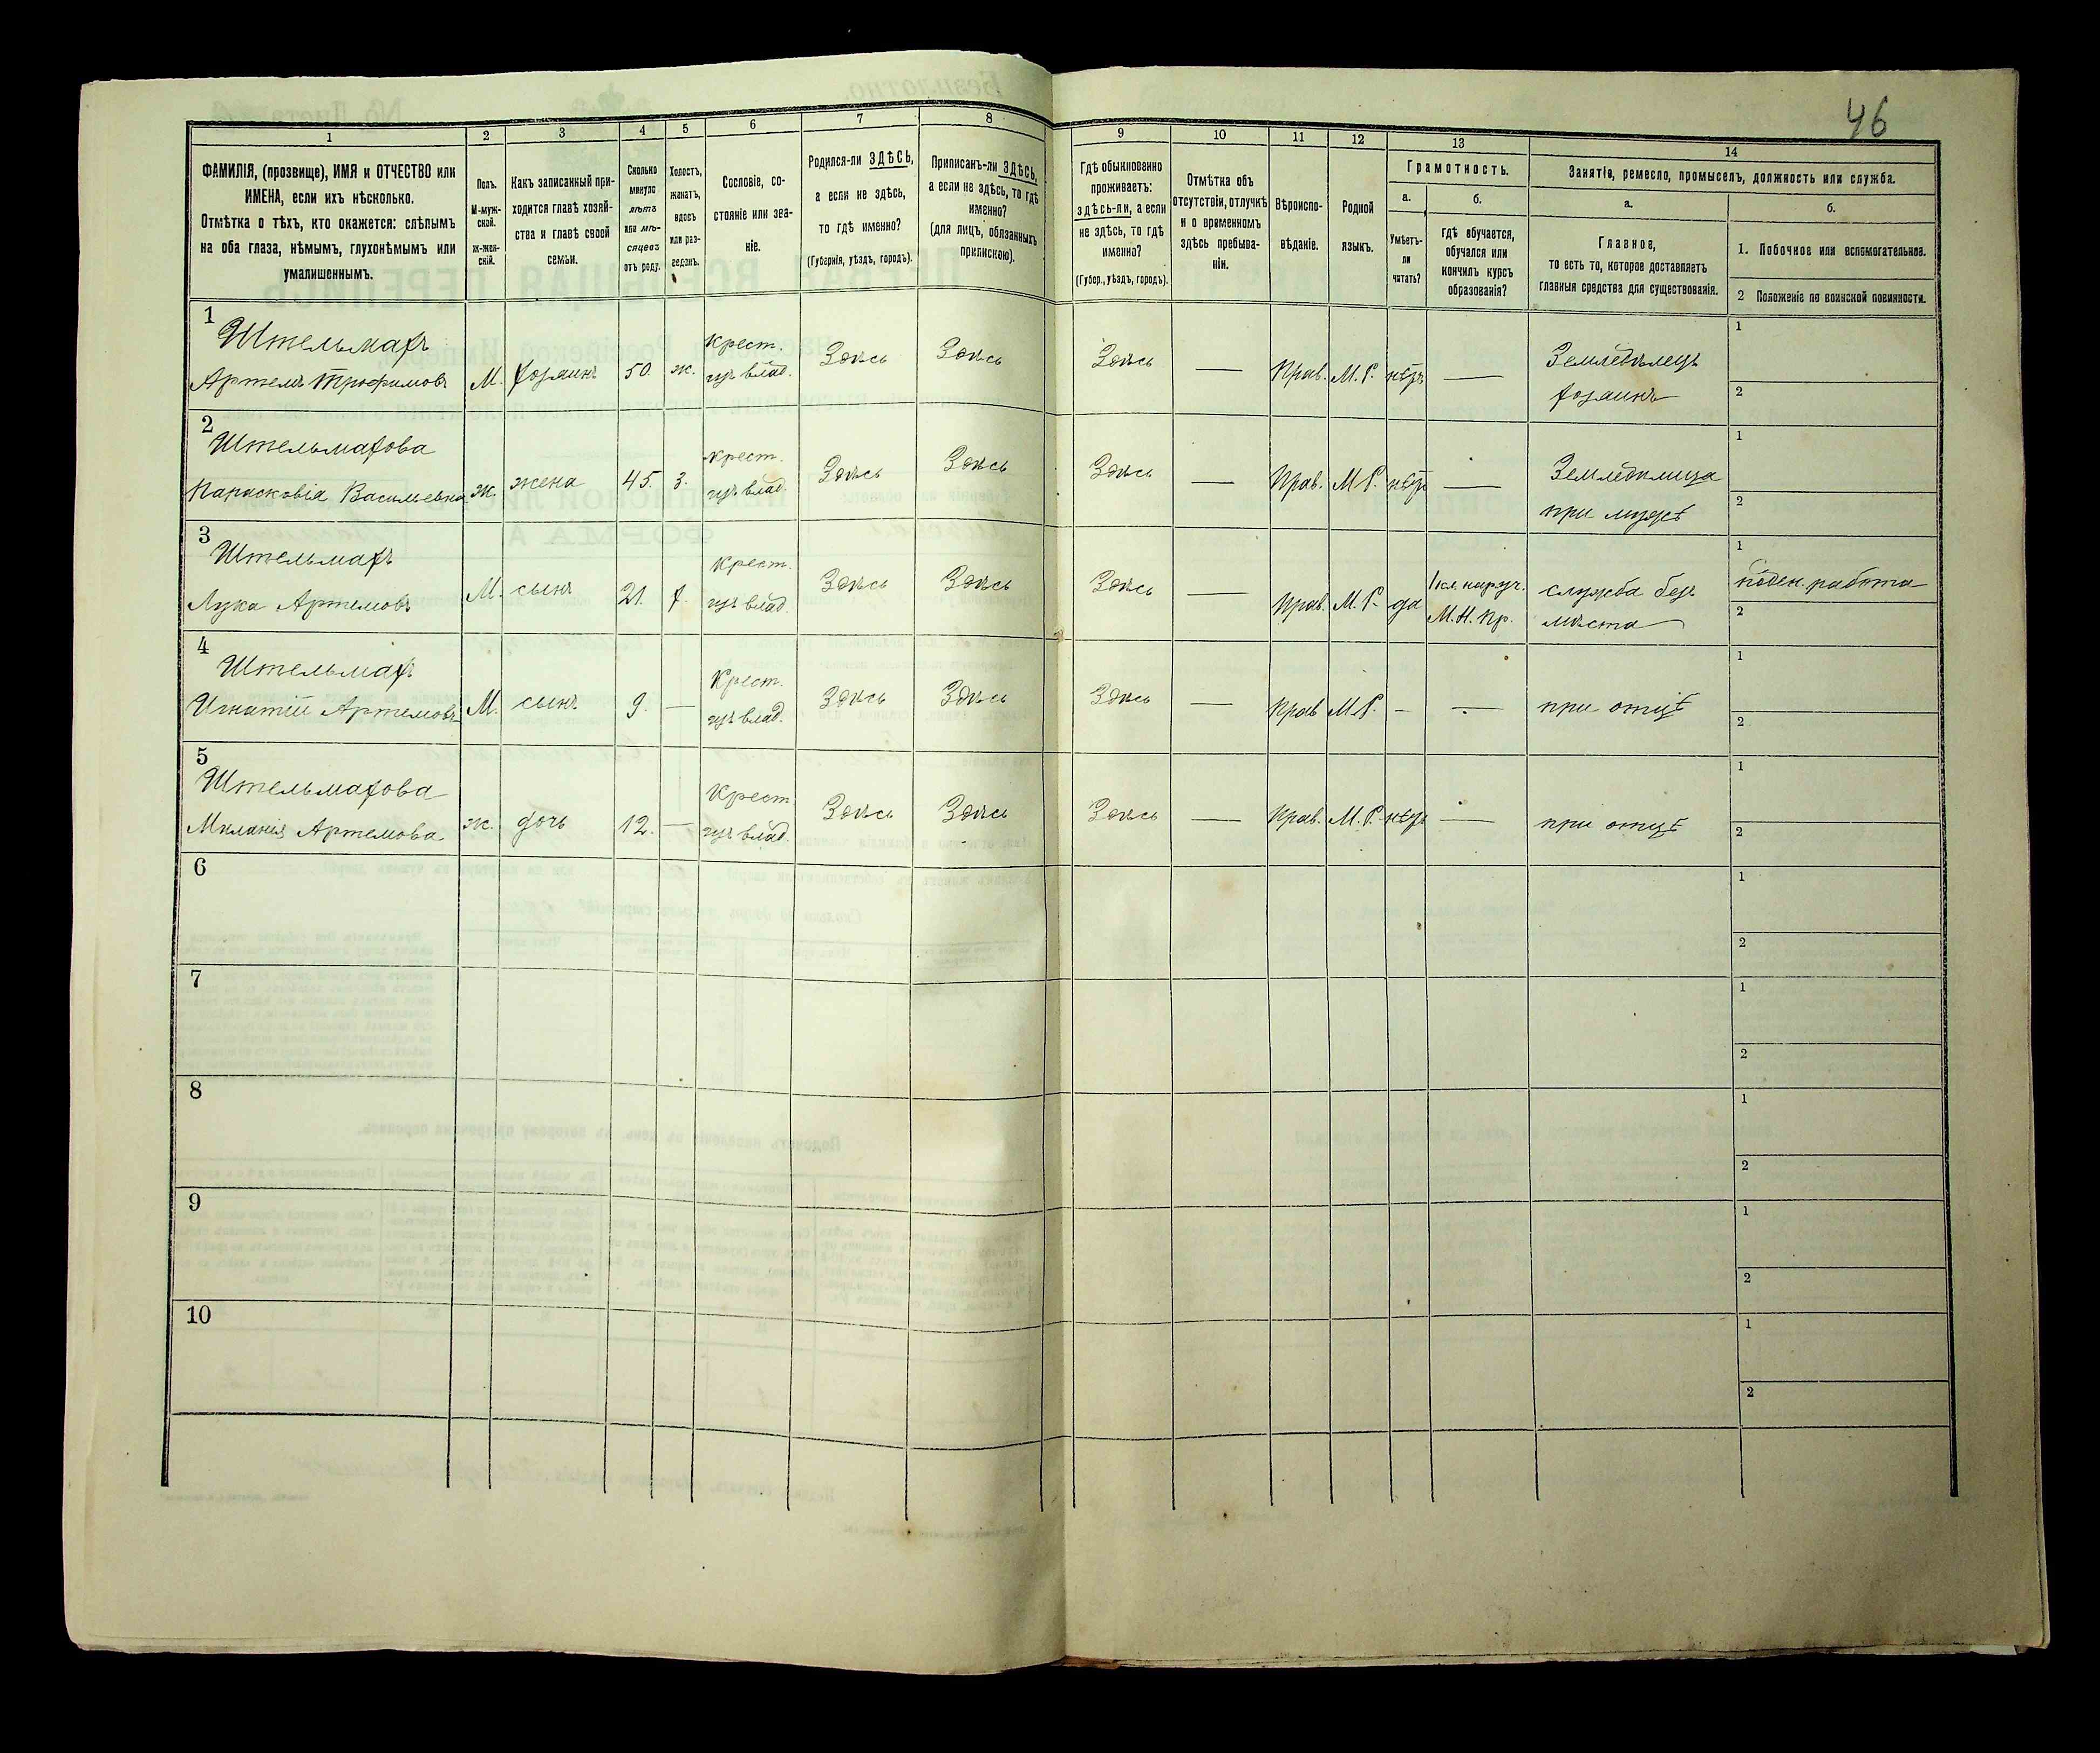 46
1
2
3
4
5
6
7
8
9
10
11
12
13
14
ФАМИЛІЯ, (прозвище), ИМЯ и ОТЧЕСТВО или
ИМЕНА, если ихъ нѣсколько.
Отмѣтка о тѣхъ, кто окажется: слѣпымъ
на оба глаза, нѣмымъ, глухонѣмымъ или
умалишеннымъ.
Полъ.
М-муж-
ской.
ж-жен-
скій.
Какъ записанный при-
ходится главѣ хозяй-
ства и главѣ своей
семьи.
Сколько
минуло
лѣтъ
или мѣ-
сяцевъ
отъ роду.
Холостъ,
женатъ,
вдовъ
или раз-
веденъ.
Сословіе, со-
стояніе или зва-
ніе.
Родился-ли ЗДѢСЬ,
а если не здѣсь,
то гдѣ именно?
(Губернія, уѣздъ, городъ).
Приписанъ-ли ЗДѢСЬ,
а если не здѣсь, то гдѣ
именно?
(для лицъ, обязанныхъ
припискою).
Гдѣ обыкновенно
проживаетъ:
здѣсь-ли, а если
не здѣсь, то гдѣ
именно?
(Губер., уѣздъ, городъ).
Отмѣтка объ
отсутствіи, отлучкѣ
и о временномъ
здѣсь пребыва-
ніи.
Вѣроиспо-
вѣданіе.
Родной
языкъ.
Грамотность.
а.
Умѣетъ-
ли
читать?
б.
гдѣ обучается,
обучался или
кончилъ курсъ
образованія?
Занятіе, ремесло, промыселъ, должность или служба.
а.
Главное,
то есть то, которое доставляетъ
главныя средства для существованія.
б.
1. Побочное или вспомогательное.
2 Положеніе по воинской повинности.
1
Штельмахъ
Артемъ Трофимовъ
М.
хозяинъ
50.
ж.
крест.
изъ влад.
Здѣсь
Здѣсь
Здѣсь
—
Прав.
М. Р.
нѣтъ
—
Земледѣлецъ
хозяинъ
1
2
2
Штельмахова
Парасковія Васильевна
ж.
жена
45.
з.
крест.
изъ влад.
Здѣсь
Здѣсь
Здѣсь
—
Прав.
М. Р.
нѣтъ
—
Земледѣлица
при мужѣ
1
2
3
Штельмахъ
Лука Артемовъ
М.
сынъ
21.
х.
крест.
изъ влад.
Здѣсь
Здѣсь
Здѣсь
—
Прав.
М. Р.
да
М. Н. Пр.
служба безъ
мѣста
1
поден. работа
2
4
Штельмахъ
Игнатій Артемовъ
М.
сынъ
9.
—
Крест.
изъ влад.
Здѣсь
Здѣсь
Здѣсь
—
Прав
М. Р.
—
—
при отцѣ
1
2
5
Штельмахова
Миланія Артемова
ж.
дочь
12.
—
Крест.
изъ влад.
Здѣсь
Здѣсь
Здѣсь
—
Прав.
М. Р.
нѣтъ
—
при отцѣ
1
2
6
1
2
7
1
2
8
1
2
9
1
2
10
1
2